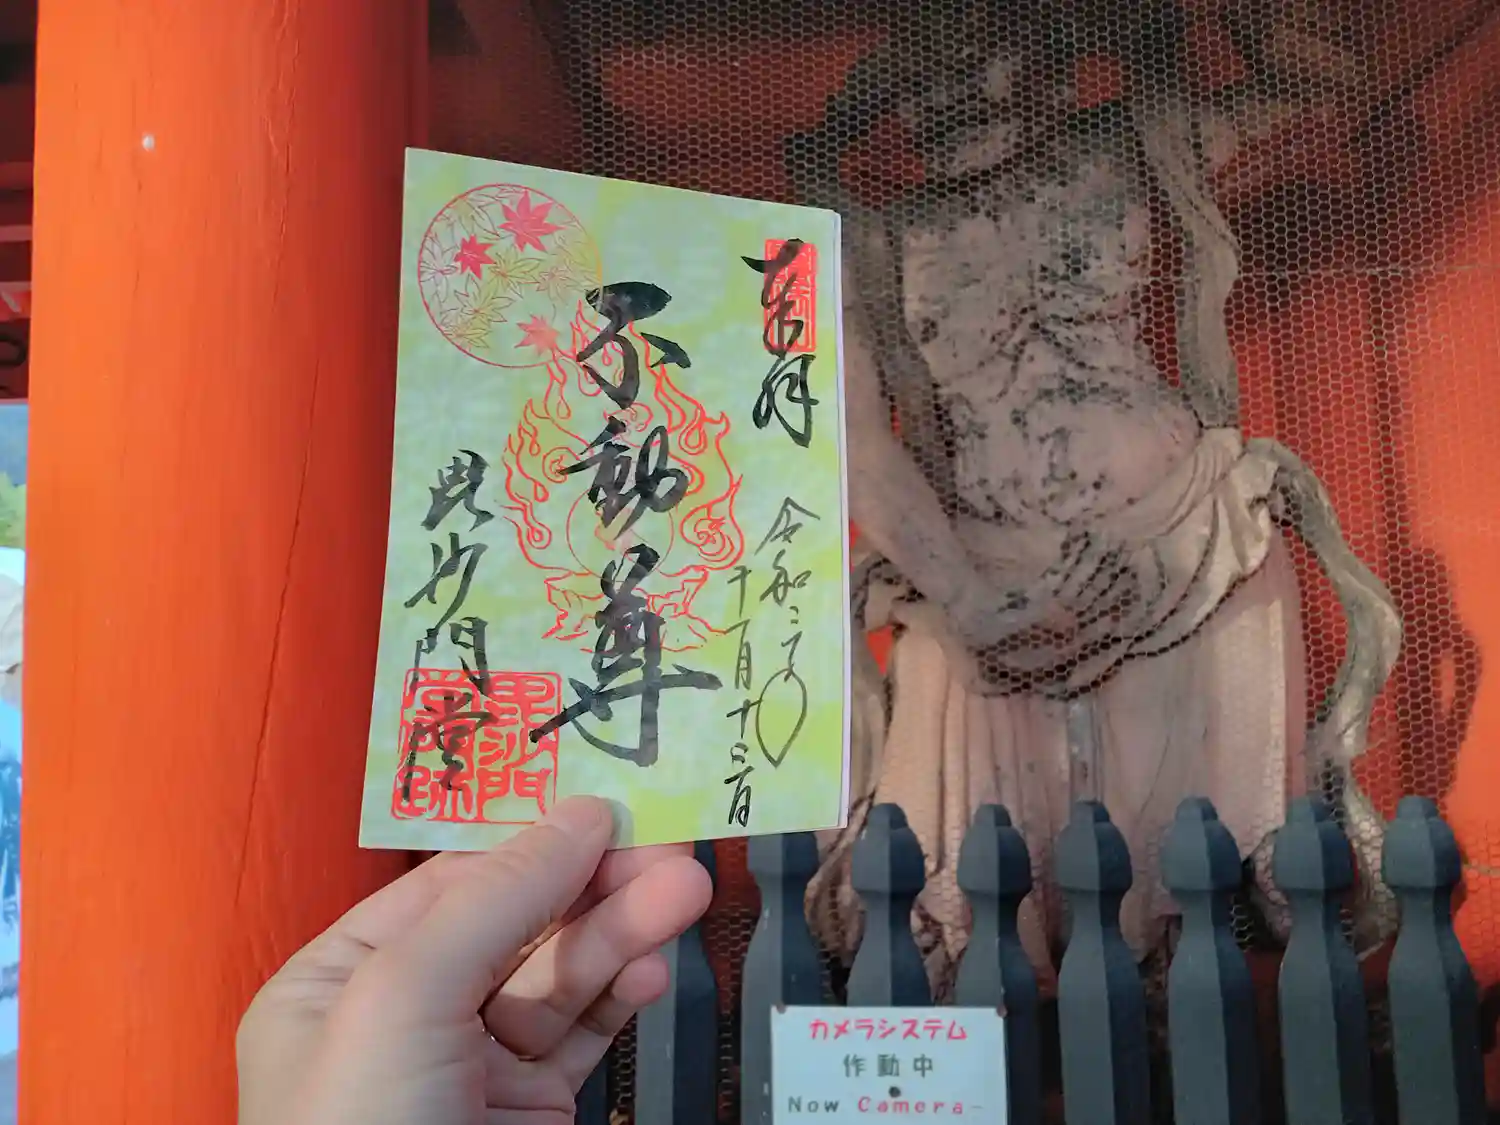 奉拝
令和二年
十一月十二日
不動尊
毘沙門堂
毘沙門
堂跡
カメラシステム
作動中
Now Camera-